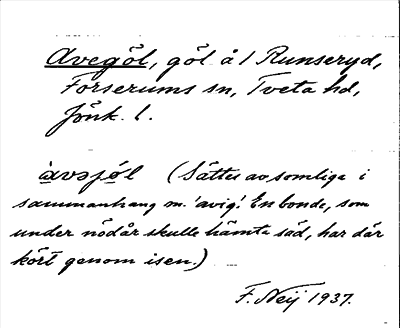 Avegöl, göl å/ Runseryd,
Forserums sn, Tveta hd,
Jönk. l.
àvəjó̱l (Sättes av somliga i
sammanhang m. 'avig'. En bonde, som
under nödår skulle hämta säd, har där
kört genom isen.)
F. Neij 1937.